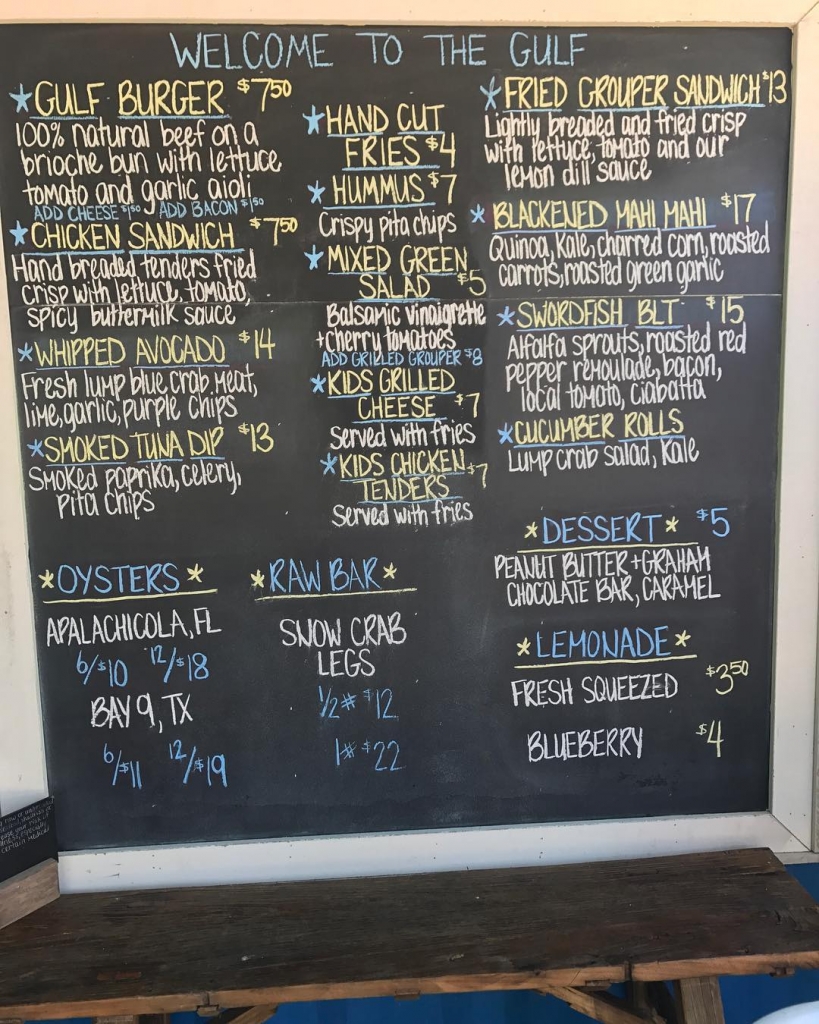 WELCOME TO THE GULF
*GULF BURGER $7.50
100% natural beef on a
brioche bun with lettuce
tomato and garlic aioli
ADD CHEESE $1.50 ADD BACON $1.50
*CHICKEN SANDWICH $7.50
Hand breaded tenders fried
crisp with lettuce, tomato,
spicy buttermilk sauce
*WHIPPED AVOCADO $14
Fresh lump blue crab meat,
lime, garlic, purple chips
*SMOKED TUNA DIP $13
Smoked paprika, celery,
pita chips
*HAND CUT
FRIES $4
*HUMMUS $7
Crispy pita chips
*MIXED GREEN
SALAD $5
Balsamic vinaigrette
+cherry tomatoes
ADD GRILLED GROUPER $8
*KIDS GRILLED
CHEESE $7
Served with fries
*KIDS CHICKEN
TENDERS $7
Served with fries
*FRIED GROUPER SANDWICH $13
Lightly breaded and fried crisp
with lettuce, tomato and our
lemon dill sauce
*BLACKENED MAHI MAHI $17
Quinoa, kale, charred corn, roasted
carrots, roasted green garlic
*SWORDFISH BLT $15
Alfalfa sprouts, roasted red
pepper remoulade, bacon,
local tomato, ciabatta
*CUCUMBER ROLLS
Lump crab salad, kale
*OYSTERS*
APALACHICOLA, FL
6/$10 12/$18
BAY 9, TX
6/$11 12/$19
*RAW BAR*
SNOW CRAB
LEGS
1/2# $12
1# $22
*DESSERT* $5
PEANUT BUTTER + GRAHAM
CHOCOLATE BAR, CARAMEL
*LEMONADE*
FRESH SQUEEZED $3.50
BLUEBERRY $4